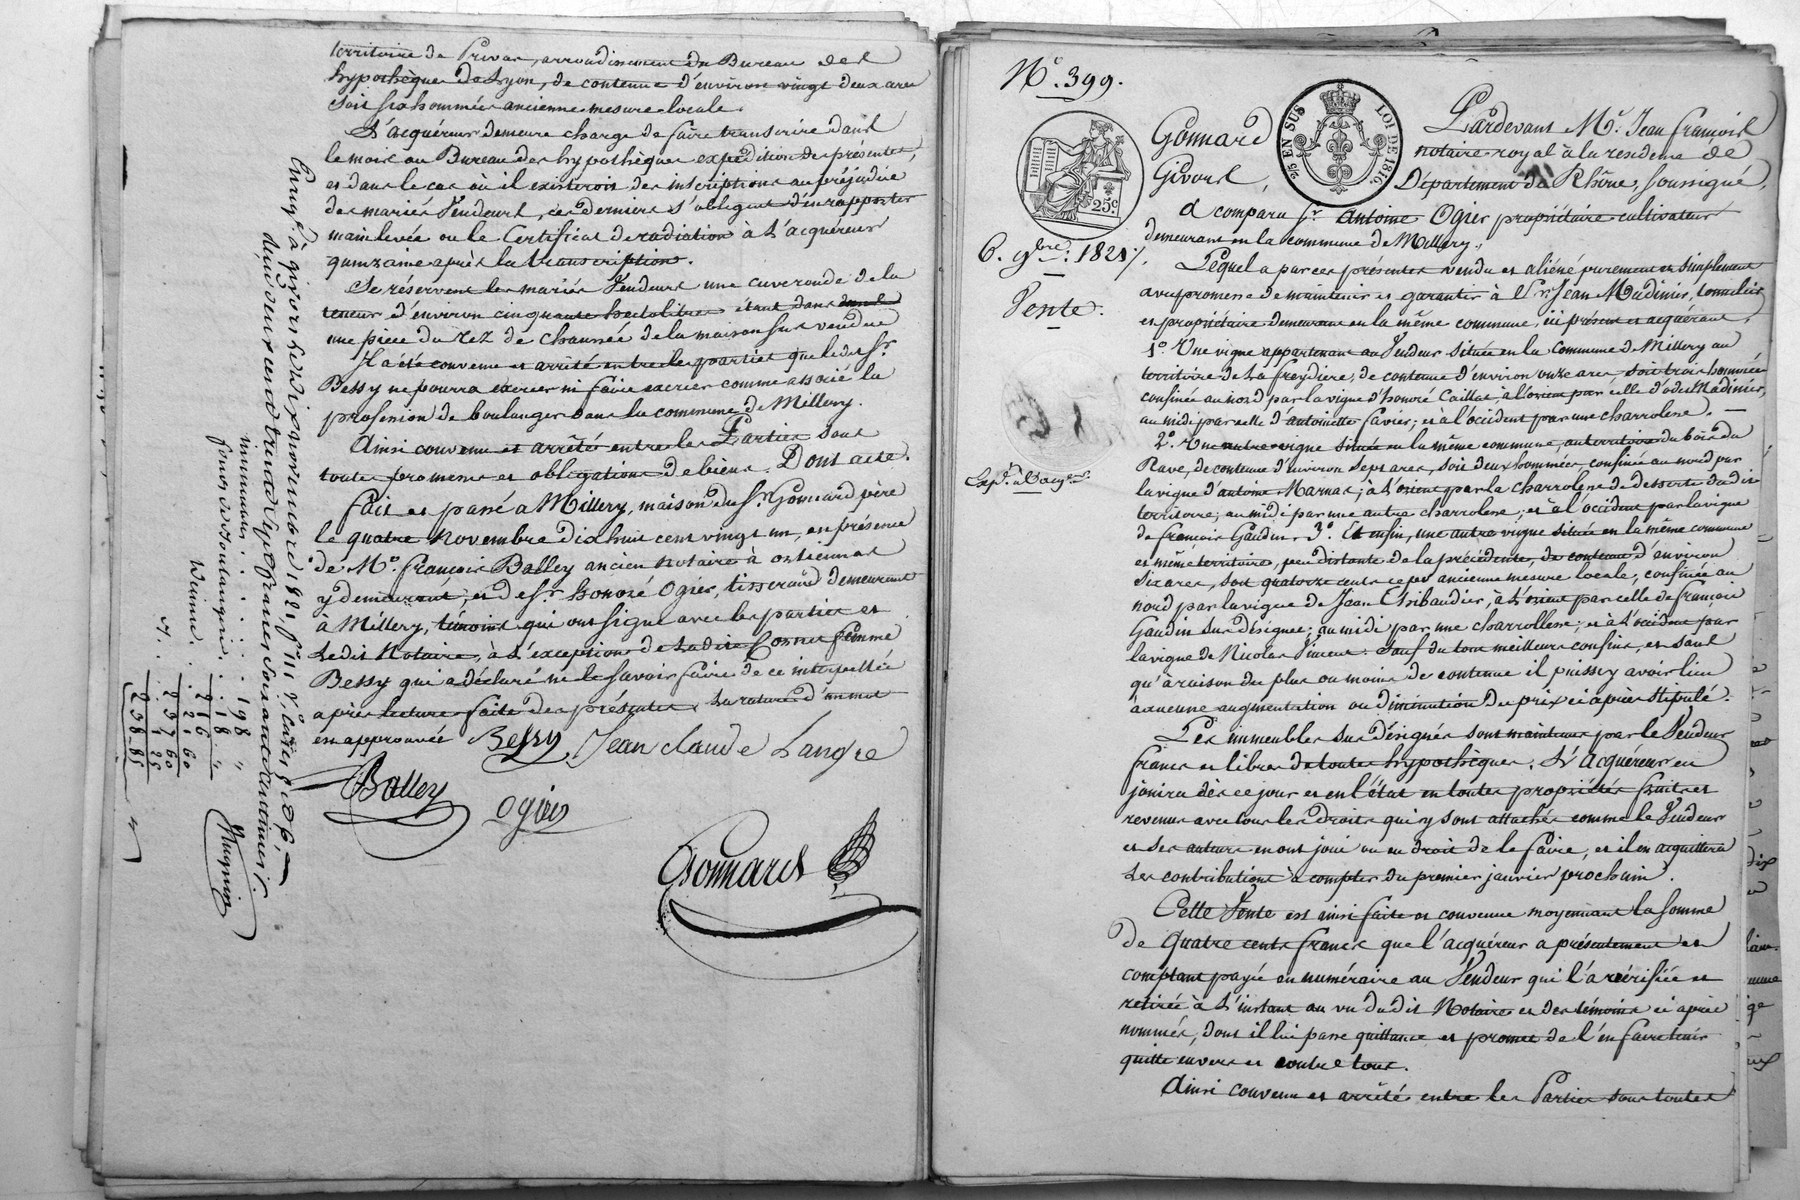 territoire de Privas, arrondissement du Bureau des
hypothèques de Lyon, de contenue d'environ vingt deux ares
soit six hommées ancienne mesure locale.
L'acquéreur demeure chargé de faire transcrire dans
le mois au Bureau des hypothèques expédition des présentes,
et dans le cas où il existerois des inscriptions au préjudice
des mariés Vendeurs, ces derniers s'obligent d'en rapporter
main levée ou le Certificat de radiation à L'acquéreur
quinzaine après la transcription.
Se réservent les mariés Vendeurs une cuve ronde de la
teneur d'environ cinquante hectolitres étant dans
une pièce du rez de chaussée de la maison sus vendue
Il a été convenu et arrêté entre les parties que ledit Sr
Bessy ne pourra exercer ni faire exercer comme associé la
profession de boulanger dans la commune de Millery.
Ainsi convenu et arrêté entre les Parties sous
toutes promesses et obligations de biens. Dont acte.
Fait et passé à Millery, maison du Sr Gonnard père
le quatre novembre dix huit cent vingt un, en présence
de Me. françois Balley ancien notaire à
y demeurant, et de Sr. honoré Ogier, tisserand demeurant
à Millery, témoins qui ont signé avec les parties et
Ledit Notaire, à L'exception de Ladite femme
Bessy que a déclaré ne le savoir faire de ce interpellée
après lecture faite des présentes. La rature d'un mot
en approuvée Bessy Jean claude Langre
Balley
Ogier
Gonnard
Enreg. à givors le dix novembre 1821 f° 111 V°. Cases 5 et 6,
deux cent trente francs soixante centimes.
immeubles . . . . 198 "
. . 18 "
216
fonds de boulangerie . . 21 60
237 60
. . 1 25
238 85
N° 399.
25c
2/5 EN SUS
LOI DE 1816.
6. 9bre. 1821.
Vente.
Pardevant Me. Jean françois
Gonnard notaire royal à la residence de
Givors, Département du Rhône, soussigné,
a comparu Sr. Antoine Ogier propriétaire cultivateur
demeurant en la commune de Millery,
Lequel a par ces présentes vendu et aliéné purement et simplement
avec promesse de maintenir et garantir à Sr. Jean Madinier, tonnelier
et propriétaire demeurant en la même commune, ici présent et acquérant,
1°. Une vigne appartenant au Vendeur située en la commune de Millery au
territoire de La freydière, de contenue d'environ onze ares soit trois hommées
confinée au nord par la vigne d'honoré Caillat, à l'orient par celle dudit Madinier,
au midi par celle d'antoinette favier; et à l'occident par une charrolere.
2°. Une autre vigne située en la même commune au territoire du bois du
Rave, de contenue d'environ sept ares, soit deux hommées, confinée au nord par
la vigne d'antoine Marnas; à L'orient par la charrolere de desserte dudit
territoire; au midi par une autre charrolere; et à l'occident par la vigne
de françois Gaudin. 3°. Et enfin, une autre vigne située en la même commune
et même territoire, peu distante de la précédente, de contenue d'environ
six ares, soit quatorze cents ceps ancienne mesure locale, confinée au
nord par la vigne de Jean Thibaudier, à L'orient par celle de françois
Gaudin sus désignée; au midi par une charrollere; et à L'occident par
la vigne de Nicolas Vincent. Sauf du tout meilleurs confins, et sans
qu'à raison du plus ou moins de contenue il puisse y avoir lieu
à aucune augmentation ou diminution du prix ci après stipulé.
Les immeubles sus désignés sont maintenus par le Vendeur
francs et libres de toutes hypothèques. L'acquéreur en
jouira dès ce jour et en l'état en toutes propriétés fruits et
revenus avec tous les droits qui y sont attachés comme le Vendeur
et ses auteurs en ont joui ou eu droit de le faire, et il en acquittera
Les contributions à compter du premier janvier prochain.
Cette Vente est ainsi faite et convenue moyennant la somme
de quatre cents francs que l'acquéreur a présentement et
comptant payée en numéraire au Vendeur qui l'a vérifiée et
retirée à L'instant au vu dudit Notaire et des témoins ci après
nommés, dont il lui passe quittance et promet de l'en faire tenir
quitte envers et contre tous.
Ainsi convenu et arrêté entre les Parties sous toutes